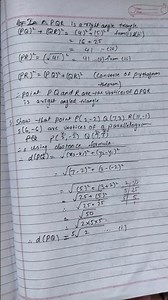 In △ PQR is a right angle triangle
(PQ)² + QR² = (4)² + (5)² from
= 16 + 25
= 41
(PR)² = (√41)² = 41
(PR)² = (PQ)² + (QR)² (converse of Pythagoras theorem)
∴ Point P Q and R are the vertices of △PQR
is a right angled triangle
Show that point P(2,-2) Q(7,3) R(11,-1)
S(6,-6) are vertices of a parallelogram
using distance formula
d(PQ) = √(x₂-x₁)² + (y₂-y₁)²
= √(7-2)² + (3-(-2)²
= √(5)² + (3+2)²
= √25 + (5)²
= √25 + 25
= √50
= √2×5×5
∴ d(PQ) = 5√2